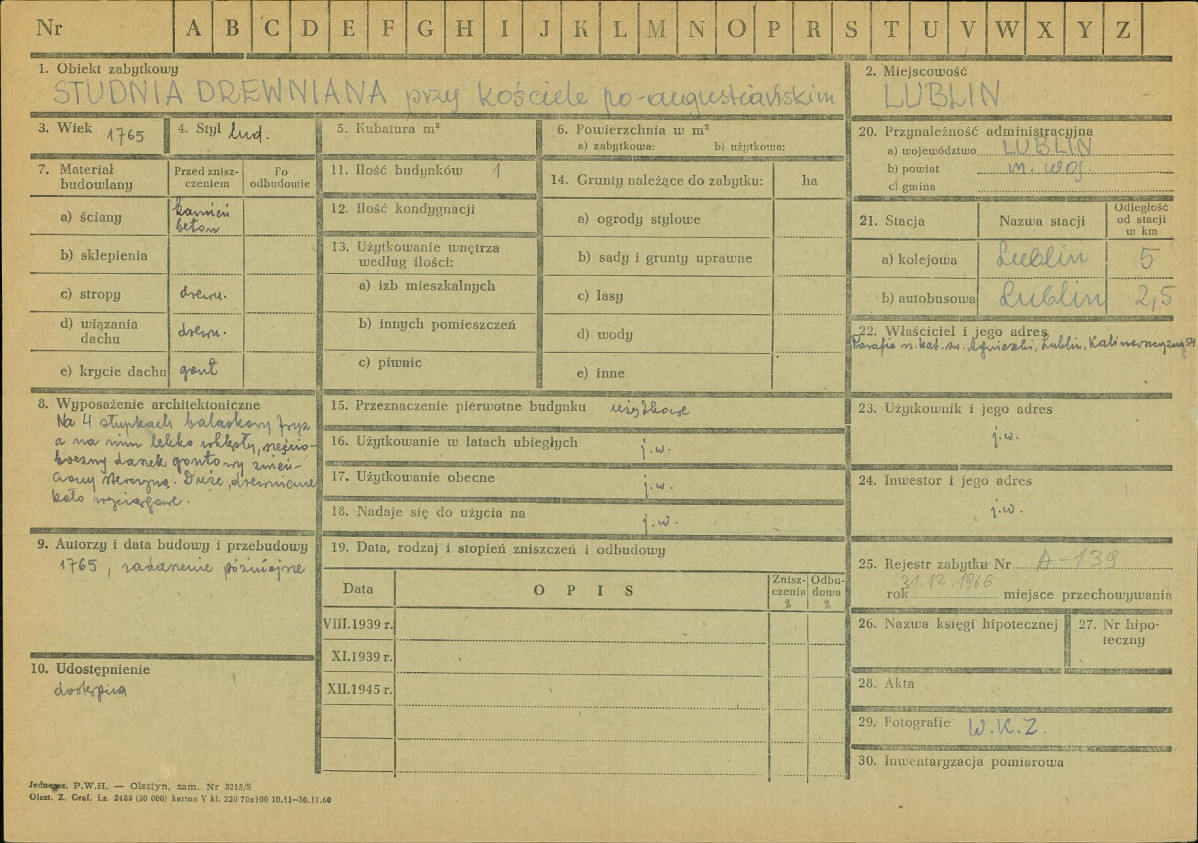 Nr A B C D E F G H I J K L M N O P R S T U V W X Y Z
1. Obiekt zabytkowy
STUDNIA DREWNIANA przy kościele po-augustiańskim
2. Miejscowość
LUBLIN
3. Wiek 1765
4. Styl lud.
5. Kubatura m³
6. Powierzchnia w m²
a) zabytkowa: b) użytkowa:
7. Materiał budowlany
Przed znisz-
czeniem
Po
odbudowie
a) ściany kamień
beton
b) sklepienia
c) stropy drewn.
d) wiązania
dachu drewn.
e) krycie dachu gont
8. Wyposażenie architektoniczne
Na 4 słupkach balaskowy fryz
a na nim lekko wklęsły, sześcio-
boczny daszek gontowy zwień-
czony sterczyną. Duże, drewniane
koło wyciągowe.
9. Autorzy i data budowy i przebudowy
1765, zadaszenie późniejsze
10. Udostępnienie
dostępna
11. Ilość budynków 1
12. Ilość kondygnacji
13. Użytkowanie wnętrza
według ilości:
a) izb mieszkalnych
b) innych pomieszczeń
c) piwnic
14. Grunty należące do zabytku: ha
a) ogrody stylowe
b) sady i grunty uprawne
c) lasy
d) wody
e) inne
15. Przeznaczenie pierwotne budynku użytkowe
16. Użytkowanie w latach ubiegłych j.w.
17. Użytkowanie obecne j.w.
18. Nadaje się do użycia na j.w.
19. Data, rodzaj i stopień zniszczeń i odbudowy
Data OPIS
Znisz-
czenia
%
Odbu-
dowa
%
VIII.1939 r.
XI.1939 r.
XII.1945 r.
20. Przynależność administracyjna
a) województwo LUBLIN
b) powiat m. woj.
c) gmina
21. Stacja Nazwa stacji
Odległość
od stacji
w km
a) kolejowa Lublin 5
b) autobusowa Lublin 2,5
22. Właściciel i jego adres
Parafia rz.kat. św. Agnieszki, Lublin, Kalinowszczyzna 54
23. Użytkownik i jego adres
j.w.
24. Inwestor i jego adres
j.w.
25. Rejestr zabytku Nr A-139
rok 31.12.1966 miejsce przechowywania
26. Nazwa księgi hipotecznej
27. Nr hipo-
teczny
28. Akta
29. Fotografie W.K.Z.
30. Inwentaryzacja pomiarowa
P.W.H. — Olsztyn, zam. Nr 3215/S
Olszt. Z. Graf. Lz. 2485 (30 000) karton V kl. 220 70x100 10.11—30.11.60